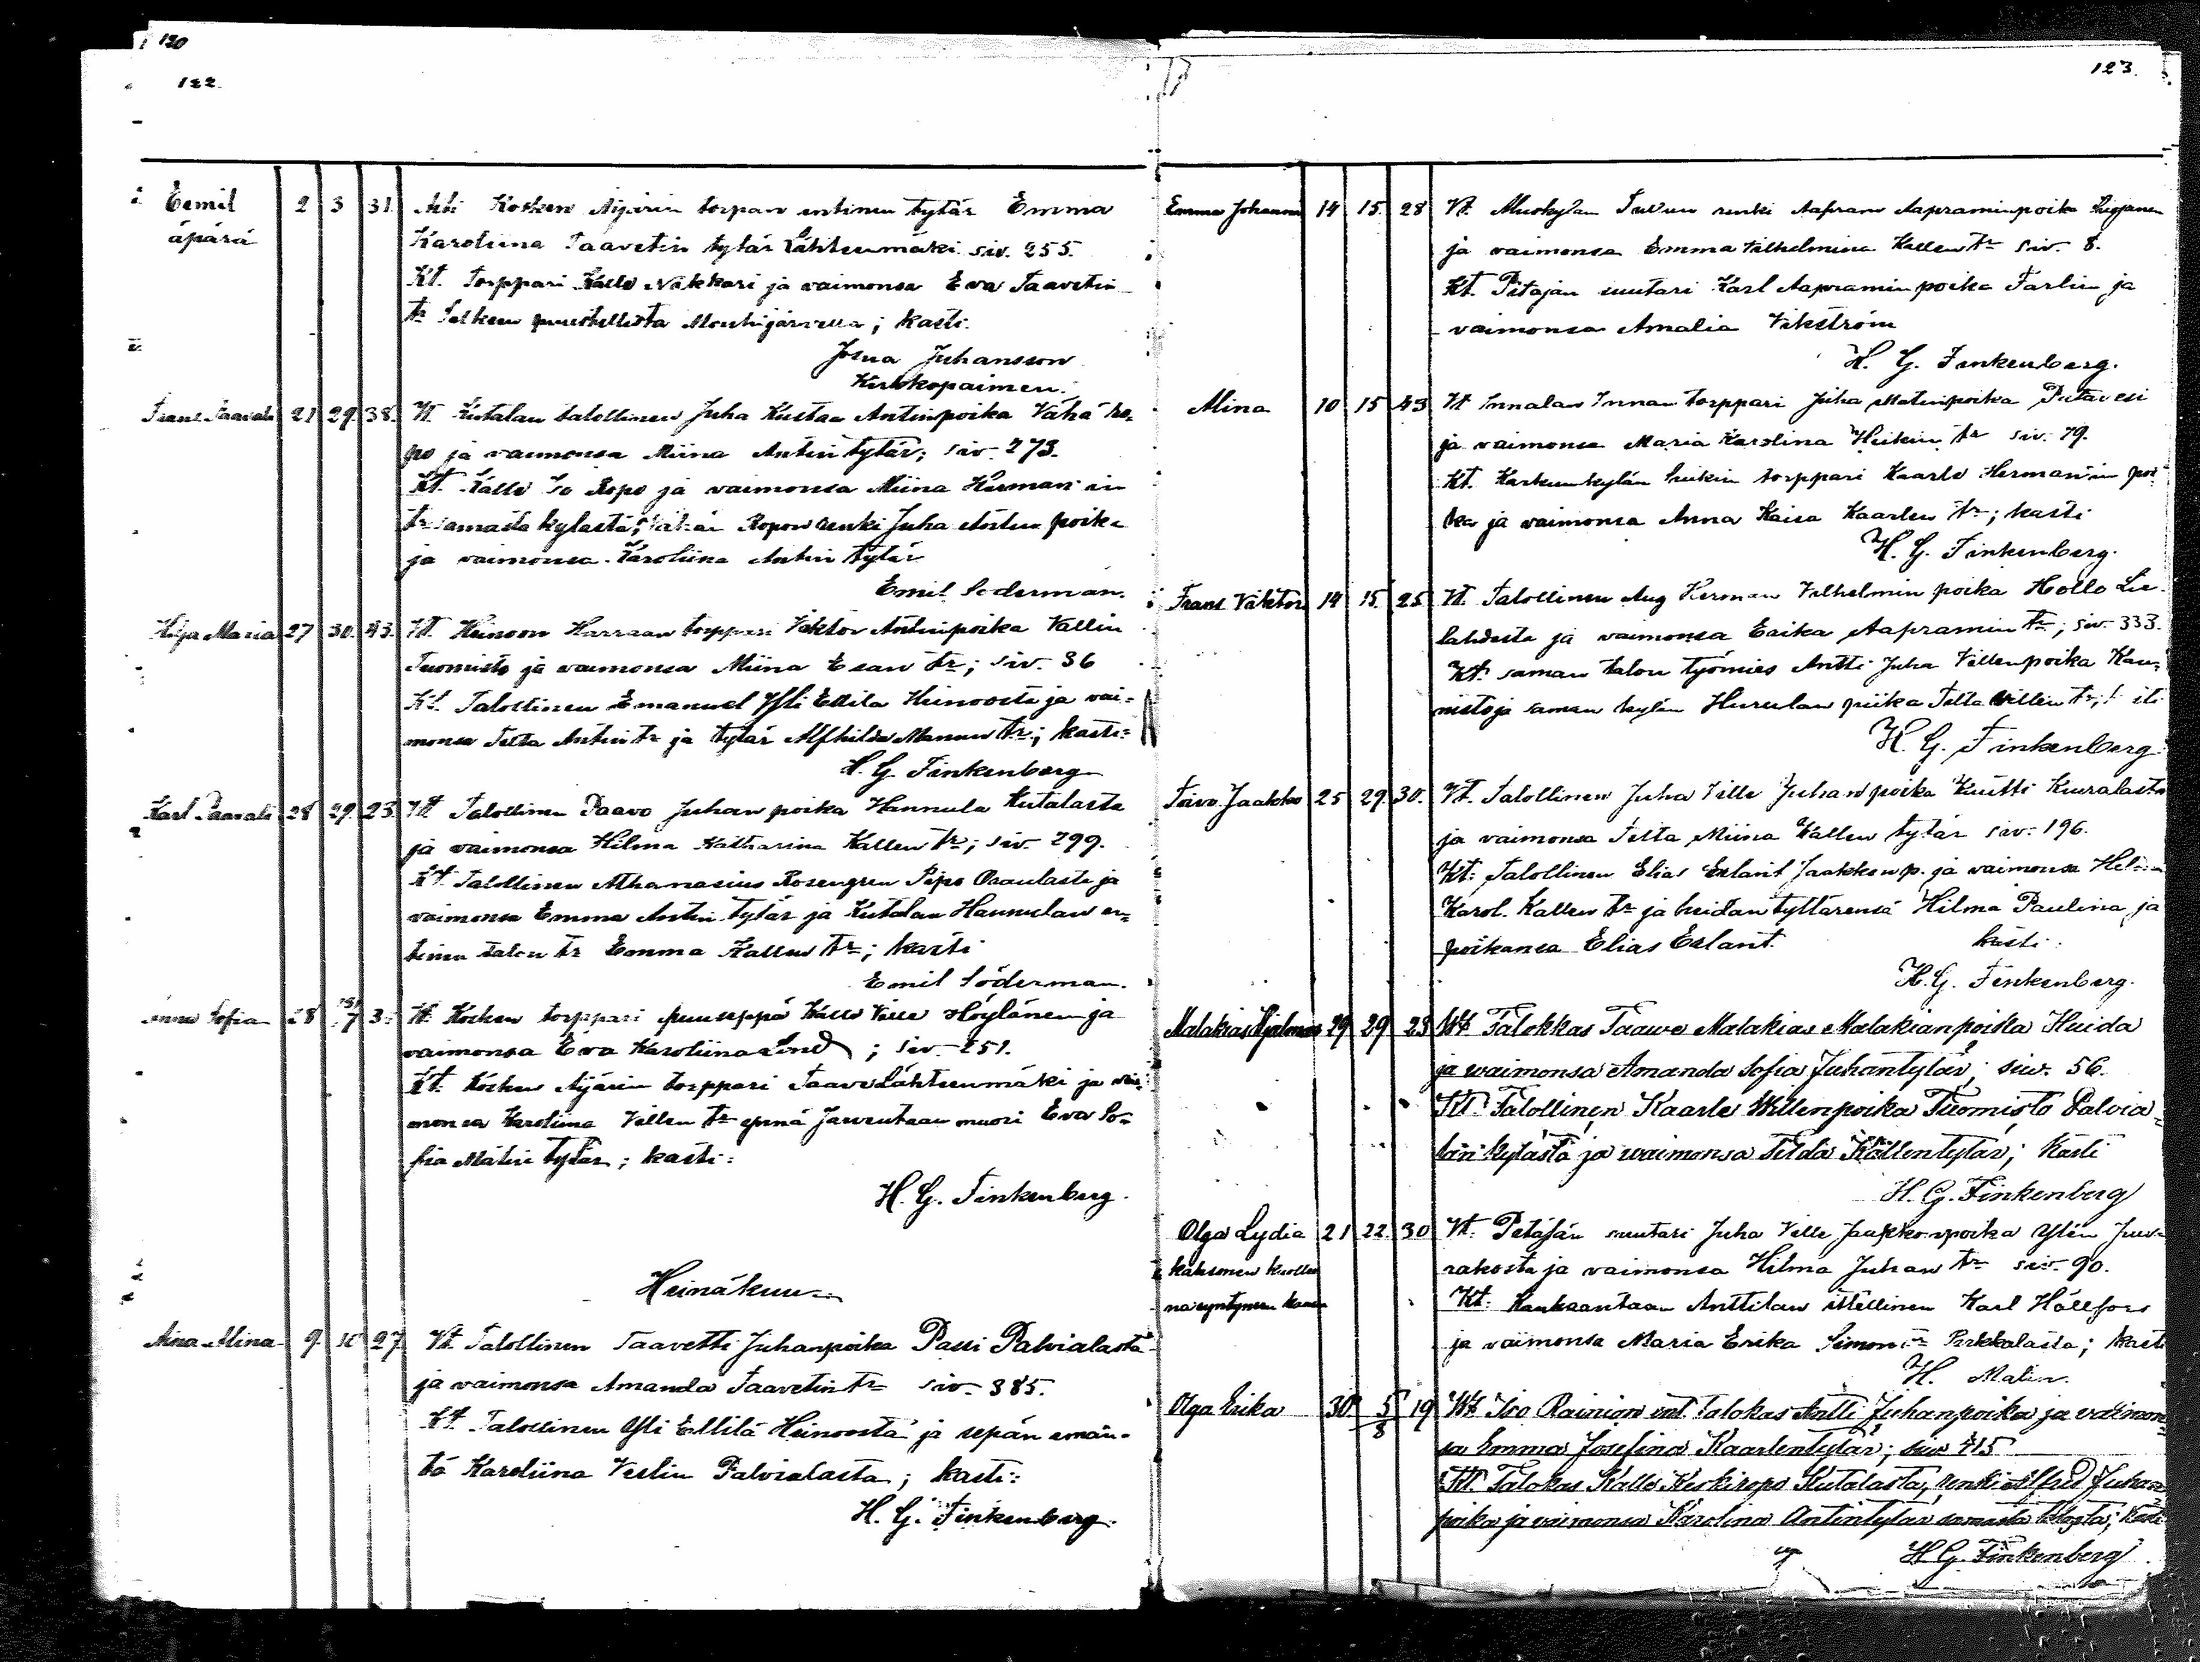 120
122.
Eemil 2 3 31. Äiti Kosken Äijärin torpan entinen tytär Emma
äpärä Karoliina Taavetin tytär Lähteenmäki siv. 255.
Kt. Torppari Kalle Näkkäri ja vaimonsa Eva Taavetin
tr puustellista Mouhijärvellä; kasti.
Josua Juhansson
Kirkkopaimen.
Frans Taavali 21 29. 38. Vt. Kutalan talollinen Juha Kustaa Antinpoika Vähä Ro-
po ja vaimonsa Miina Antin tytär; siv. 273.
Kt. Kalle Iso Ropo ja vaimonsa Miina Herman in
tr samasta kylästä; Vähän Ropon renki Juha poika
ja vaimonsa Karoliina Antin tytär
Emil Söderman.
Hilja Maria 27 30. 43. Vt. Heinoon Harraan torppari Viktor Antinpoika Vallin
Tuomisto ja vaimonsa Miina Esan tr; siv. 36
Kt. Talollinen Emanuel Yli Ellilä Heinoosta ja vai-
monsa Tilta Antin tr ja tytär Alfhilda Manun tr; kasti:
H. G. Finkenberg
Karl Taavali 28 29. 23. Vt Talollinen Paavo Juhan poika Hannula Kutalasta
ja vaimonsa Hilma Katharina Kallen tr; siv. 299.
Kt. Talollinen Athanasius Rosengren Piipo ja
vaimonsa Emma Antin tytär ja Kutalan Hannulan en-
tinen talon tr Emma Kallen tr; kasti
Emil Söderman.
Sofia 28 7 3 Vt. Kosken torppari puuseppä Kalle Ville Höylänen ja
vaimonsa Eva Karoliina Lind; siv. 251.
Kt. Kosken Äijärin torppari Taave Lähteenmäki ja vai-
monsa Karoliina Villen tr ynnä muori Eva So-
fia Matin tytär; kasti:
H. G. Finkenberg.
Heinäkuu
Aina Miina 9. 10 27 Vt. Talollinen Taavetti Juhanpoika Passi Palvialasta
ja vaimonsa Amanda Taavetin tr siv. 385.
Kt. Talollinen Yli Ellilä Heinoosta ja sepän emän-
tä Karoliina Veslin Palvialasta; kasti:
H. G. Finkenberg.
123.
Emma Johanna 14 15. 28 Vt. renki Aapram Aapraminpoika
ja vaimonsa Emma Vilhelmina Kallen tr siv. 8.
Kt. Pitäjän suutari Karl Aapramin poika Farlin ja
vaimonsa Amalia Vikström
H. G. Finkenberg.
Mina 10 15 43 Vt Innalan Innan torppari Juha Matinpoika
ja vaimonsa Maria Karolina Heikin tr siv. 79.
Kt. Karkunkylän torppari Kaarlo Herman'in poi-
ka ja vaimonsa Anna Kaisa Kaarlen tr; kasti
H. G. Finkenberg.
Frans Viktor 14 15. 25 Vt. Talollinen Aug Herman Vilhelmin poika Hollo Lie-
lahdesta ja vaimonsa Erika Aapramin tr; siv. 333.
Kt: saman talon työmies Antti Juha Villenpoika Kau-
nisto ja saman kylän Hurulan piika Tilta Villen tr;
H. G. Finkenberg
Toivo Jaakko 25 29. 30. Vt. Talollinen Juha Ville Juhanpoika Kuitti Kuuralasta
ja vaimonsa Tilta Miina Kallen tytär siv. 196.
Kt: Talollinen Elias Erlant Jaakkonp. ja vaimonsa
Karol. Kallen tr ja heidän tyttärensä Hilma Paulina ja
poikansa Elias Erlant. kasti:
H. G. Finkenberg.
Malakias Hjalmar 29 29 23 Wt Talokkas Taawe Malakias Malakianpoika Huida
ja waimonsa Amanda Sofia Juhantytär; siw. 56.
Kt. Talollinen Kaarle Willenpoika Tuomisto Palvia-
lan kylästä ja waimonsa Tilda Kallentytär; kasti
H. G. Finkenberg
Olga Lydia 21 22. 30 Vt. Pitäjän suutari Juha Ville Jaakkonpoika Ylén Juu-
kaksonen kuollee rakosta ja vaimonsa Hilma Juhan tr siv. 90.
na syntyneen kanssa Kt: Kauksantaan Anttilan itsellinen Karl Hällfors
ja vaimonsa Maria Erika Simon tr Pirkkalasta; kasti
H. Malin.
Olga Erika 30 5/8 19 Wt Iso Rainion ent. Talokas Antti Juhanpoika ja vaimon-
sa Emma Josefina Kaarlentytär; siw 415
Kt. Talokas Kalle Keskiropo Kutalasta, renki Alfred Juhan
poika ja vaimonsa Karolina Antintytär samasta kylästä; kasti
H. G. Finkenberg